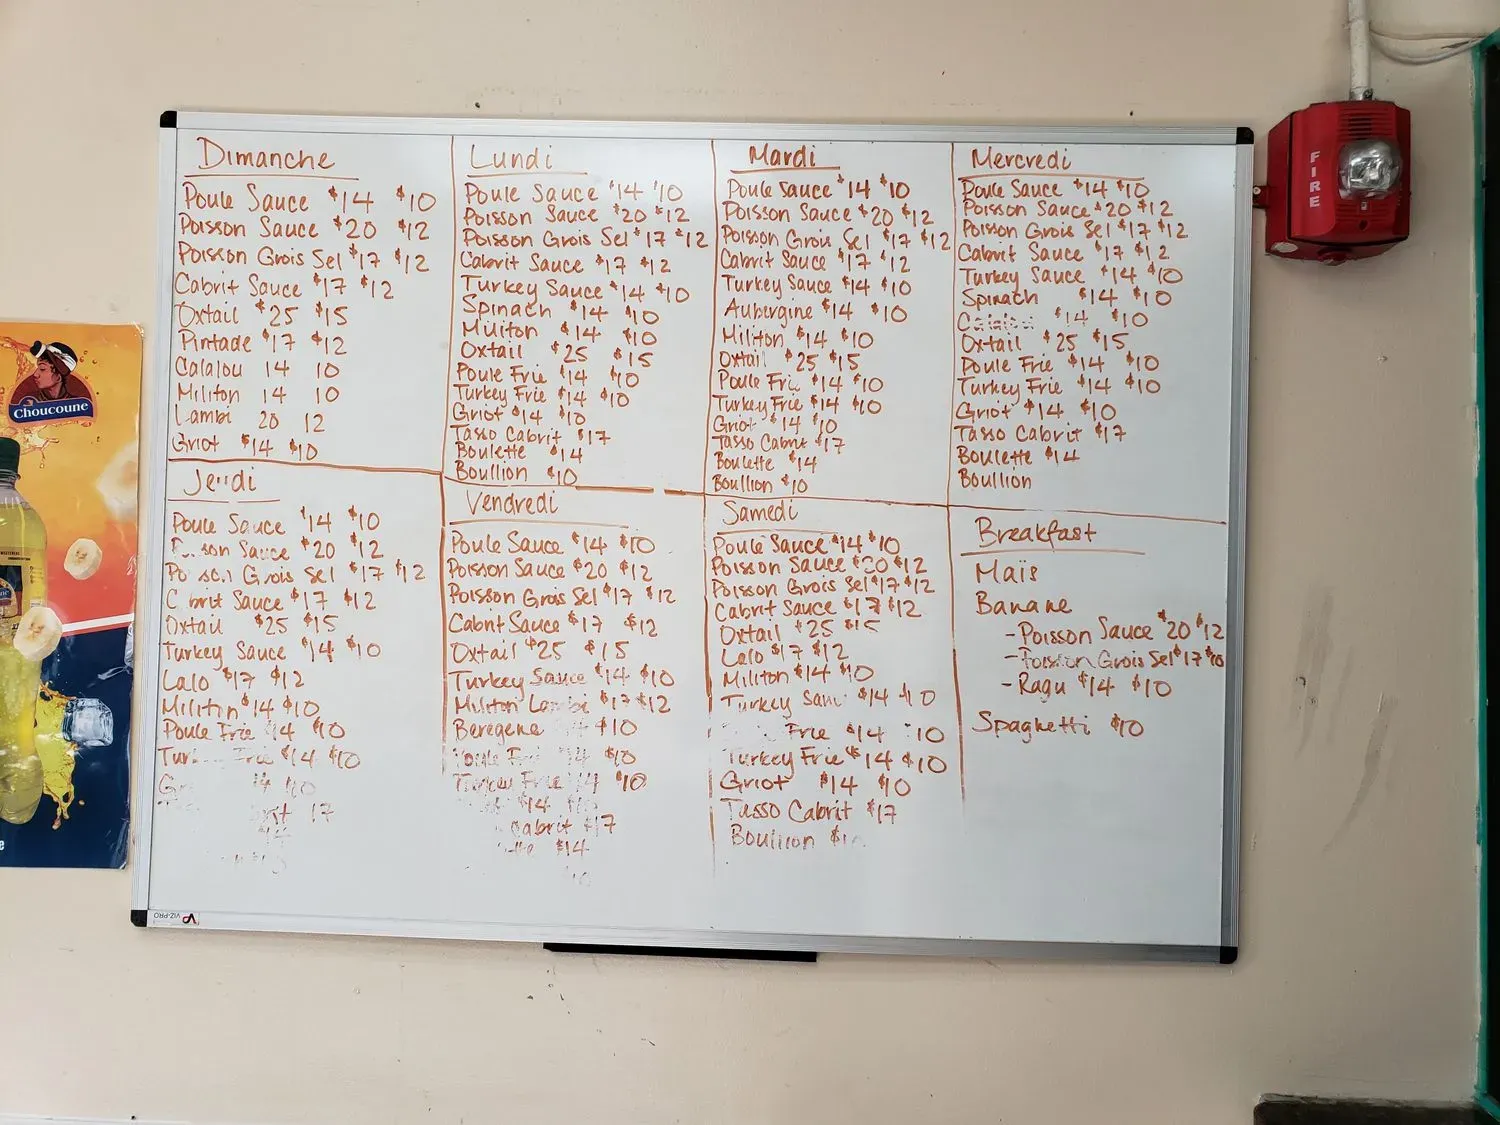 Dimanche
Poule Sauce $14 $10
Poisson Sauce $20 $12
Poisson Grois Sel $17 $12
Cabrit Sauce $17 $12
Oxtail $25 $15
Pintade $17 $12
Calalou 14 10
Militon 14 10
Lambi 20 12
Griot $14 $10
Lundi
Poule Sauce $14 $10
Poisson Sauce $20 $12
Poisson Grois Sel $17 $12
Cabrit Sauce $17 $12
Turkey Sauce $14 $10
Spinach $14 $10
Militon $14 $10
Oxtail $25 $15
Poule Frie $14 $10
Turkey Frie $14 $10
Griot $14 $10
Tasso Cabrit $17
Boulette $14
Boullion $10
Mardi
Poule Sauce $14 $10
Poisson Sauce $20 $12
Poisson Grois Sel $17 $12
Cabrit Sauce $17 $12
Turkey Sauce $14 $10
Aubergine $14 $10
Militon $14 $10
Oxtail $25 $15
Poule Frie $14 $10
Turkey Frie $14 $10
Griot $14 $10
Tasso Cabrit $17
Boulette $14
Boullion $10
Mercredi
Poule Sauce $14 $10
Poisson Sauce $20 $12
Poisson Grois Sel $17 $12
Cabrit Sauce $17 $12
Turkey Sauce $14 $10
Spinach $14 $10
$14 $10
Oxtail $25 $15
Poule Frie $14 $10
Turkey Frie $14 $10
Griot $14 $10
Tasso Cabrit $17
Boulette $14
Boullion
Jeudi
Poule Sauce $14 $10
Sauce $20 $12
Grois Sel $17 $12
Cabrit Sauce $17 $12
Oxtail $25 $15
Turkey Sauce $14 $10
Lalo $17 $12
Militon $14 $10
Poule Frie $14 $10
Frie $14 $10
14 $10
17
Vendredi
Poule Sauce $14 $10
Poisson Sauce $20 $12
Poisson Grois Sel $17 $12
Cabrit Sauce $17 $12
Oxtail $25 $15
Turkey Sauce $14 $10
Militon Lambi $17 $12
Beregene $10
Poule Frie 14 $10
Turkey Frie 14 $10
$14 $10
Cabrit $17
$14
Samedi
Poule Sauce $14 $10
Poisson Sauce $20 $12
Poisson Grois Sel $17 $12
Cabrit Sauce $17 $12
Oxtail $25 $15
Lalo $17 $12
Militon $14 $10
Turkey $14 $10
Frie $14 $10
Turkey Frie $14 $10
Griot $14 $10
Tasso Cabrit $17
Boullion
Breakfast
Maïs
Banane
-Poisson Sauce $20 $12
-Poisson Grois Sel $17
-Ragu $14 $10
Spaghetti $10
Choucoune
FIRE
VIZ-PRO